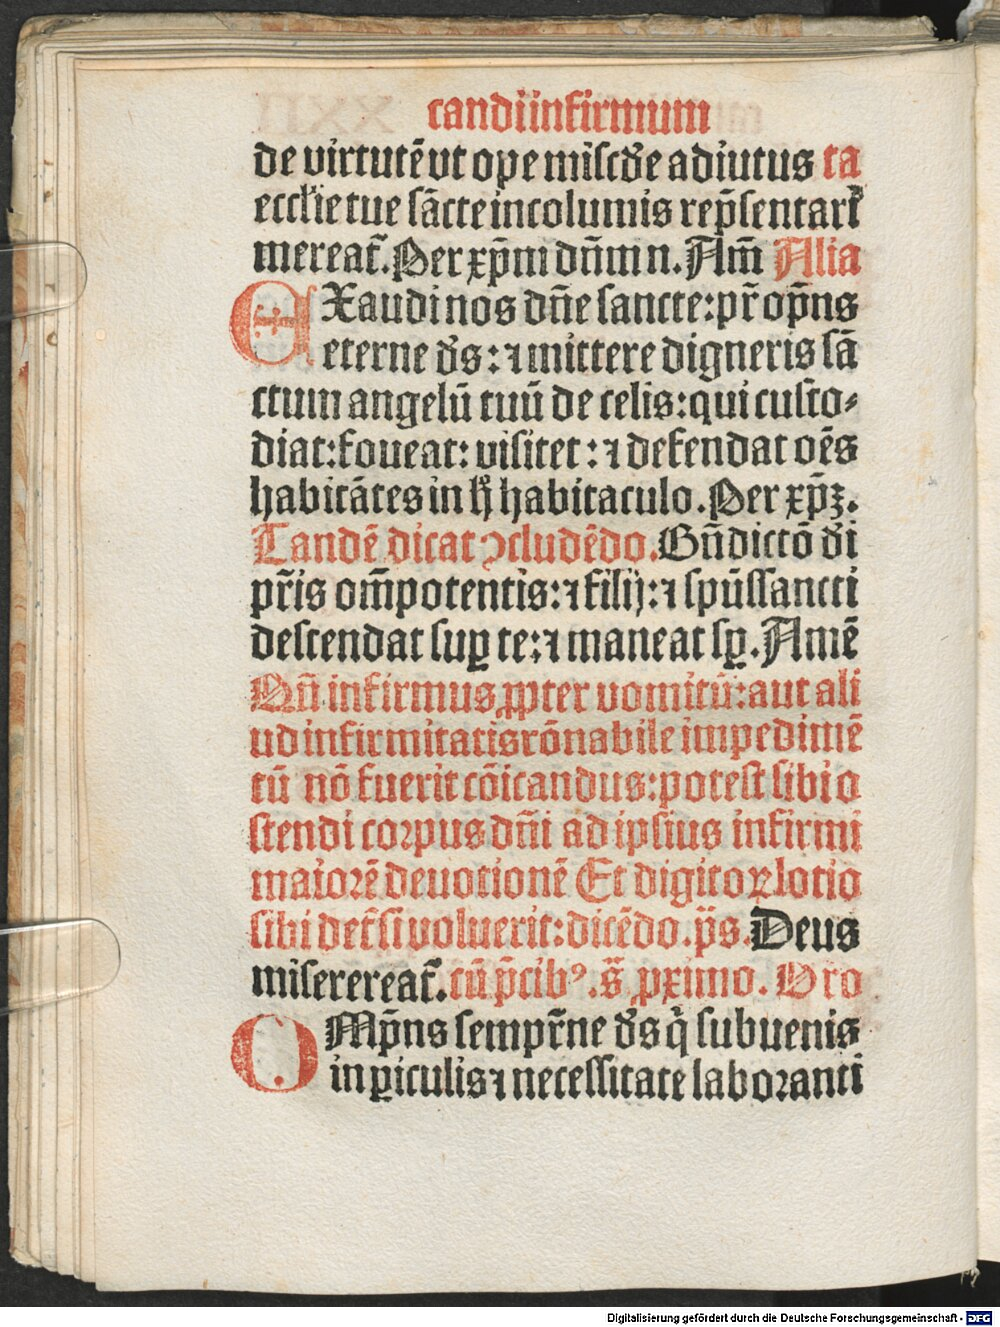 candi infirmum
de virtutē vt ope miscd̄e adiutus ta
eccl̄ie tue sācte incolumis rep̄sentari
mereat̄. Per xp̄m dn̄m n. Am̄ Alia
EXaudi nos dn̄e sancte: pr̄ op̄ns
eterne d̄s: ⁊ mittere digneris sā
ctum angelū tuū de celis: qui custo⸗
diat: foueat: visitet: ⁊ defendat oēs
habitātes in h̄ habitaculo. Per xp̄ꝫ.
Tandē dicat ↄcludēdo. Bn̄dictō d̄i
pr̄is om̄potentis: ⁊ filij: ⁊ spūssancti
descendat suꝑ te: ⁊ maneat sꝑ. Amē
Qn̄ infirmus ꝓpter vomitū: aut ali
ud infirmitatis rōnabile impedimē
tū nō fuerit cōicandus: potest sibi o
stendi corpus dn̄i ad ipsius infirmi
maiorē deuotionē Et digitoꝝ lotio
sibi det̄ si voluerit: dicēdo. p̄s. Deus
misereat̄. cū p̄cibꝰ. s̄ ꝓximo. Oro
OMp̄ns sempr̄ne d̄s q̄ subuenis
in ꝑiculis ⁊ necessitate laboranti
Digitalisierung gefördert durch die Deutsche Forschungsgemeinschaft - DFG